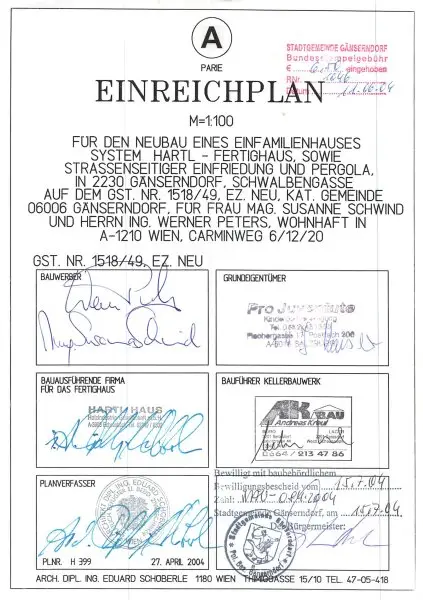 A
PARIE
STADTGEMEINDE GÄNSERNDORF
eingehoben
EINREICHPLAN
M=1:100
FÜR DEN NEUBAU EINES EINFAMILIENHAUSES
SYSTEM HARTL - FERTIGHAUS, SOWIE
STRASSENSEITIGER EINFRIEDUNG UND PERGOLA,
IN 2230 GÄNSERNDORF, SCHWALBENGASSE
AUF DEM GST. NR. 1518/49, EZ. NEU, KAT. GEMEINDE
06006 GÄNSERNDORF, FÜR FRAU MAG. SUSANNE SCHWIND
UND HERRN ING. WERNER PETERS, WOHNHAFT IN
A-1210 WIEN, CARMINWEG 6/12/20
GST. NR. 1518/49, EZ. NEU
BAUWERBER
GRUNDEIGENTÜMER
Pro Juventute
BAUAUSFÜHRENDE FIRMA
FÜR DAS FERTIGHAUS
HARTL HAUS
BAUFÜHRER KELLERBAUWERK
AK BAU
Andreas Kreul
0664/213 47 86
Bewilligt mit baubehördlichem
Bewilligungsbescheid vom 15.7.04
Zahl:
Stadtgemeinde Gänserndorf, am 15.7.04
Der Bürgermeister:
PLANVERFASSER
PLNR. H 399 27. APRIL 2004
ARCH. DIPL. ING. EDUARD SCHÖBERLE 1180 WIEN THIMIGGASSE 15/10 TEL. 47-05-418